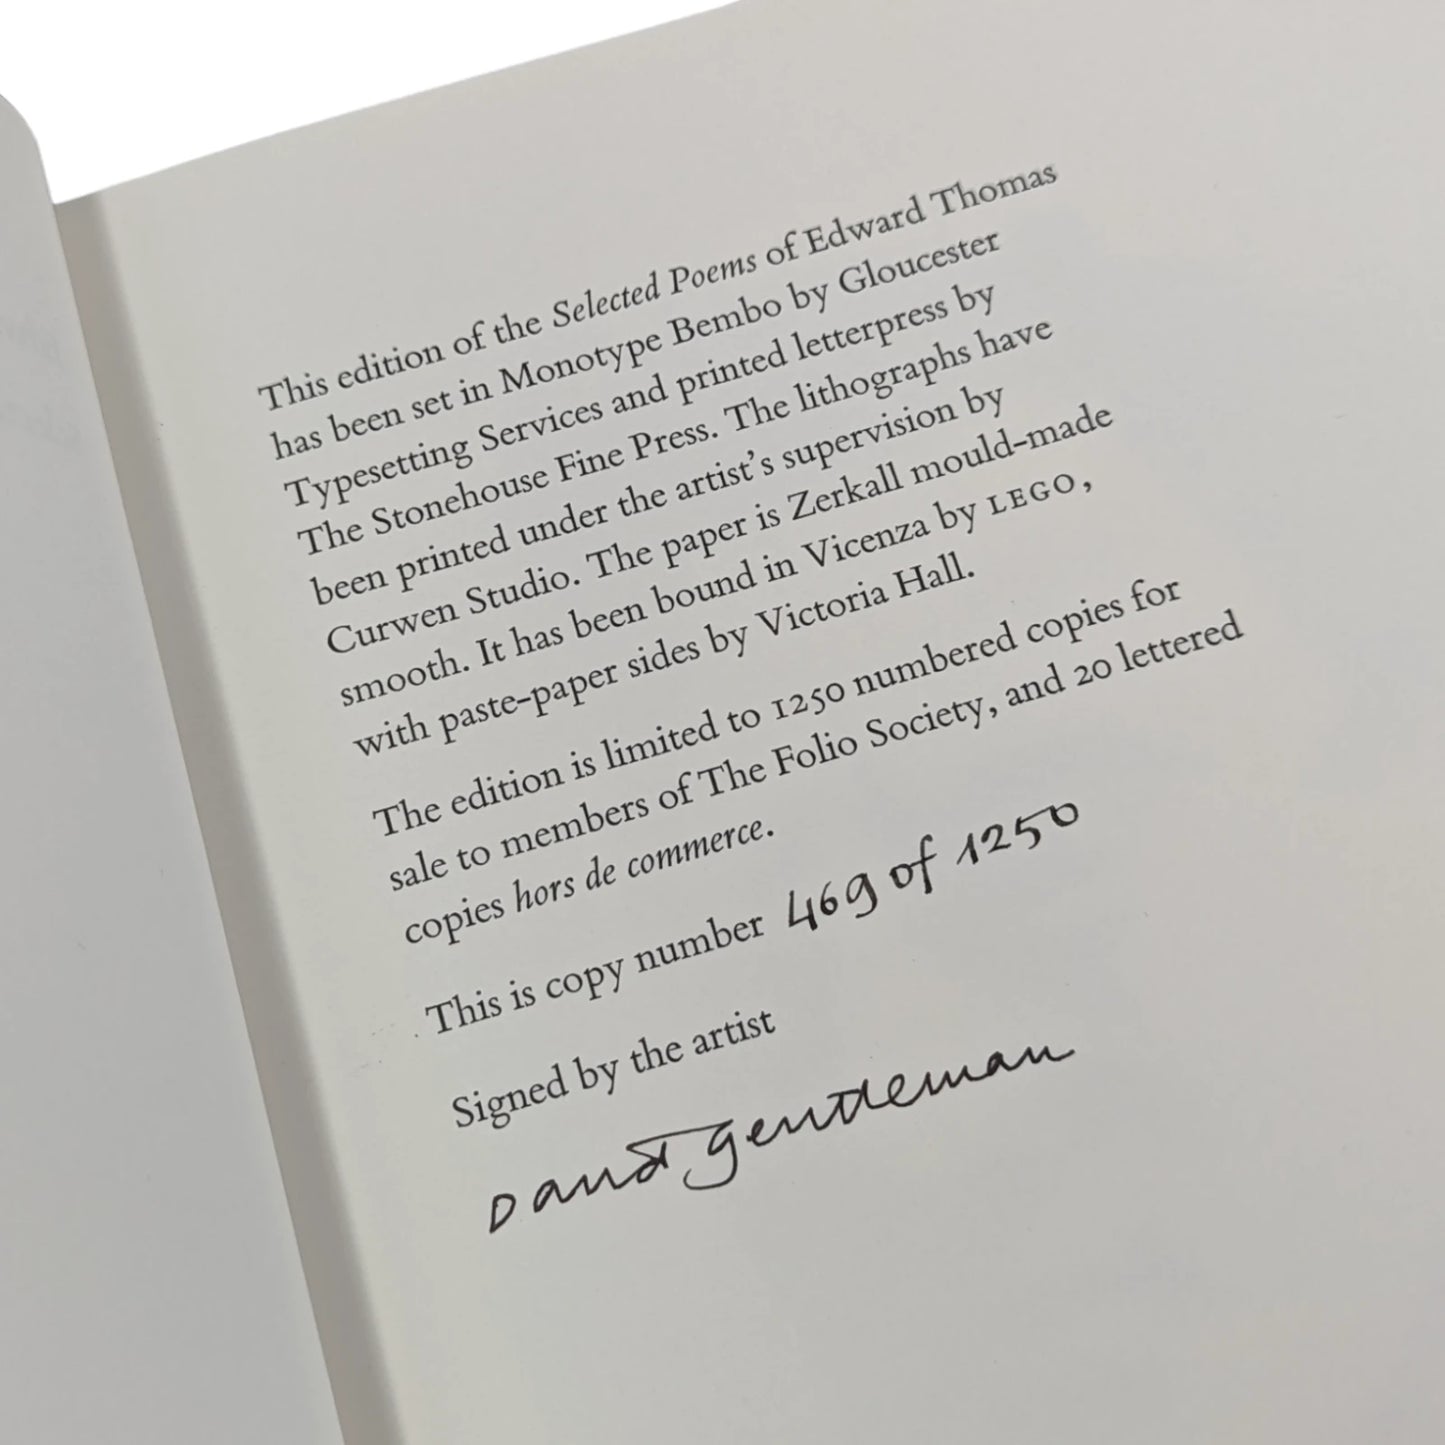 This edition of the Selected Poems of Edward Thomas
has been set in Monotype Bembo by Gloucester
Typesetting Services and printed letterpress by
The Stonehouse Fine Press. The lithographs have
been printed under the artist’s supervision by
Curwen Studio. The paper is Zerkall mould-made
smooth. It has been bound in Vicenza by LEGO,
with paste-paper sides by Victoria Hall.
The edition is limited to 1250 numbered copies for
sale to members of The Folio Society, and 20 lettered
copies hors de commerce.
This is copy number 469 of 1250
Signed by the artist
David Gentleman